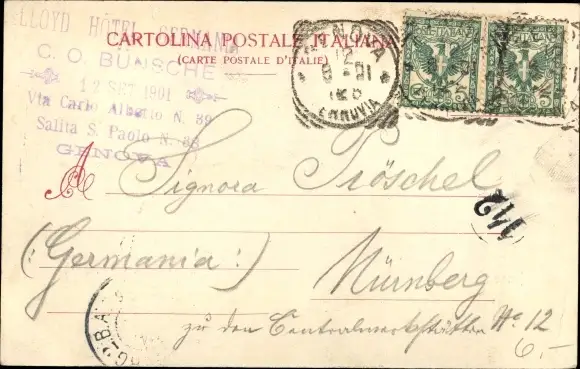 LLOYD HÔTEL GERMANIA
C. O. BÜNSCHE
12 SET 1901
Via Carlo Alberto N. 39
Salita S. Paolo N. 38
GENOVA
CARTOLINA POSTALE ITALIANA
(CARTE POSTALE D'ITALIE)
GENOVA
12
9-01
FERROVIA
POSTE ITALIANE
C. 5
POSTE ITALIANE
C. 5
A Signora Pröschel
(Germania:) Nürnberg
zu den Centralwerkstätten No. 12
6.-